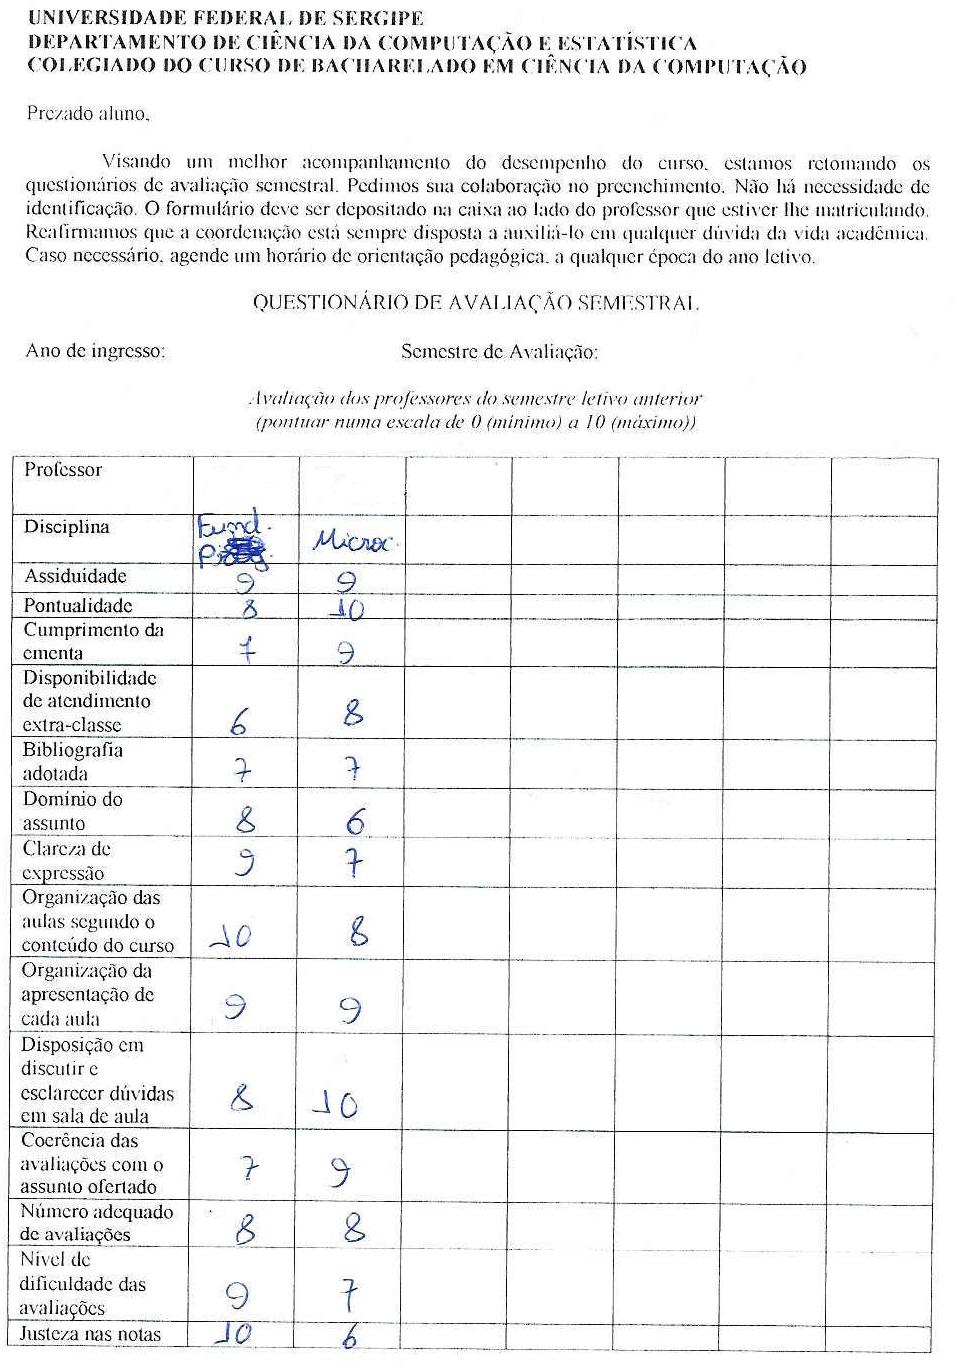 UNIVERSIDADE FEDERAL DE SERGIPE
DEPARTAMENTO DE CIÊNCIA DA COMPUTAÇÃO E ESTATÍSTICA
COLEGIADO DO CURSO DE BACHARELADO EM CIÊNCIA DA COMPUTAÇÃO
Prezado aluno,
Visando um melhor acompanhamento do desempenho do curso, estamos retomando os
questionários de avaliação semestral. Pedimos sua colaboração no preenchimento. Não há necessidade de
identificação. O formulário deve ser depositado na caixa ao lado do professor que estiver lhe matriculando.
Reafirmamos que a coordenação está sempre disposta a auxiliá-lo em qualquer dúvida da vida acadêmica.
Caso necessário, agende um horário de orientação pedagógica, a qualquer época do ano letivo.
QUESTIONÁRIO DE AVALIAÇÃO SEMESTRAL
Ano de ingresso: Semestre de Avaliação:
Avaliação dos professores do semestre letivo anterior
(pontuar numa escala de 0 (mínimo) a 10 (máximo))
Professor
Disciplina Fund. Microc.
Assiduidade 9 9
Pontualidade 8 10
Cumprimento da
ementa 7 9
Disponibilidade
de atendimento
extra-classe 6 8
Bibliografia
adotada 7 7
Domínio do
assunto 8 6
Clareza de
expressão 9 7
Organização das
aulas segundo o
conteúdo do curso 10 8
Organização da
apresentação de
cada aula 9 9
Disposição em
discutir e
esclarecer dúvidas
em sala de aula 8 10
Coerência das
avaliações com o
assunto ofertado 7 9
Número adequado
de avaliações 8 8
Nível de
dificuldade das
avaliações 9 7
Justeza nas notas 10 6